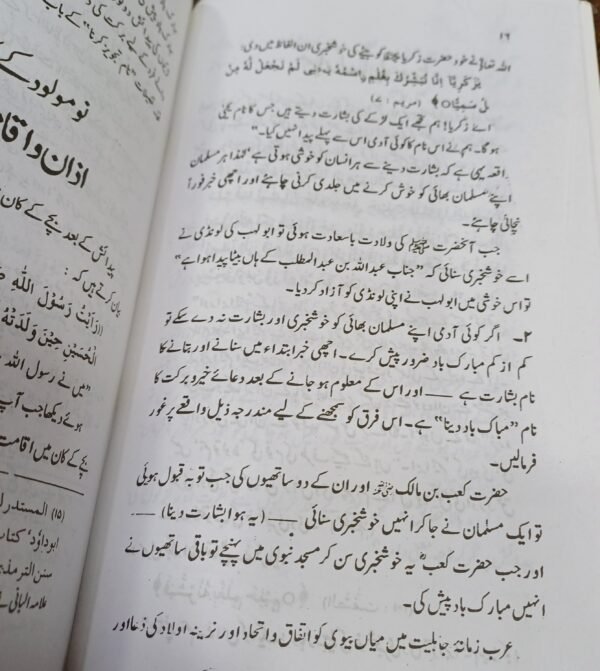 ۱۶
اللہ تعالیٰ نے خود حضرت زکریا کو بیٹے کی خوشخبری ان الفاظ میں دی:
يٰزَكَرِيَّآ اِنَّا نُبَشِّرُكَ بِغُلٰمِ ِۨاسْمُهٗ يَحْيٰى لَمْ نَجْعَلْ لَّهٗ مِنْ
سَمِيًّا (مریم : ۷)
اے زکریا! ہم تجھے ایک لڑکے کی بشارت دیتے ہیں جس کا نام یحییٰ
ہوگا۔ ہم نے اس نام کا کوئی آدمی اس سے پہلے پیدا نہیں کیا۔"
واقعہ یہی ہے کہ بشارت دینے سے ہر انسان کو خوشی ہوتی ہے لہٰذا ہر مسلمان
اپنے مسلمان بھائی کو خوش کرنے میں جلدی کرنی چاہئے اور اچھی خبر فوراً
پہنچانی چاہئے۔
جب آنحضرت ﷺ کی ولادت باسعادت ہوئی تو ابولہب کی لونڈی نے
اسے خوشخبری سنائی کہ "جناب عبداللہ بن عبدالمطلب کے ہاں بیٹا پیدا ہوا ہے"
تو اس خوشی میں ابولہب نے اپنی لونڈی کو آزاد کر دیا۔
۲۔ اگر کوئی آدمی اپنے مسلمان بھائی کو خوشخبری اور بشارت نہ دے سکے تو
کم از کم مبارک باد ضرور پیش کرے۔ اچھی خبر ابتداء میں سنانے اور بتانے کا
نام بشارت ہے ـــــ اور اس کے معلوم ہو جانے کے بعد دعائے خیر و برکت کا
نام "مباک باد دینا" ہے۔ اس فرق کو سمجھنے کے لیے مندرجہ ذیل واقعے پر غور
فرمالیں۔
حضرت کعب بن مالک اور ان کے دو ساتھیوں کی جب توبہ قبول ہوئی
تو ایک مسلمان نے جا کر انہیں خوشخبری سنائی ـــــ (یہ ہوا بشارت دینا) ـــــ
اور جب حضرت کعب یہ خوشخبری سن کر مسجد نبوی میں پہنچے تو باقی ساتھیوں نے
انہیں مبارک باد پیش کی۔
عرب زمانۂ جاہلیت میں میاں بیوی کو اتفاق و اتحاد اور نرینہ اولاد کی دعا اور
نومولود کے
اذان و اقا
پیدائش کے بعد بچے کے کان
بیان کرتے ہیں کہ :
((رَاَيْتُ رَسُوْلَ اللّٰهِ
الْحُسَيْنِ حِيْنَ وَلَدَتْهُ
"میں نے رسول اللہ
ہوئے دیکھا جب آپ
بچے کے کان میں اقامت
(۱۵) المستدرک
ابوداؤد' کتاب
سنن الترمذی
علامہ البانی نے